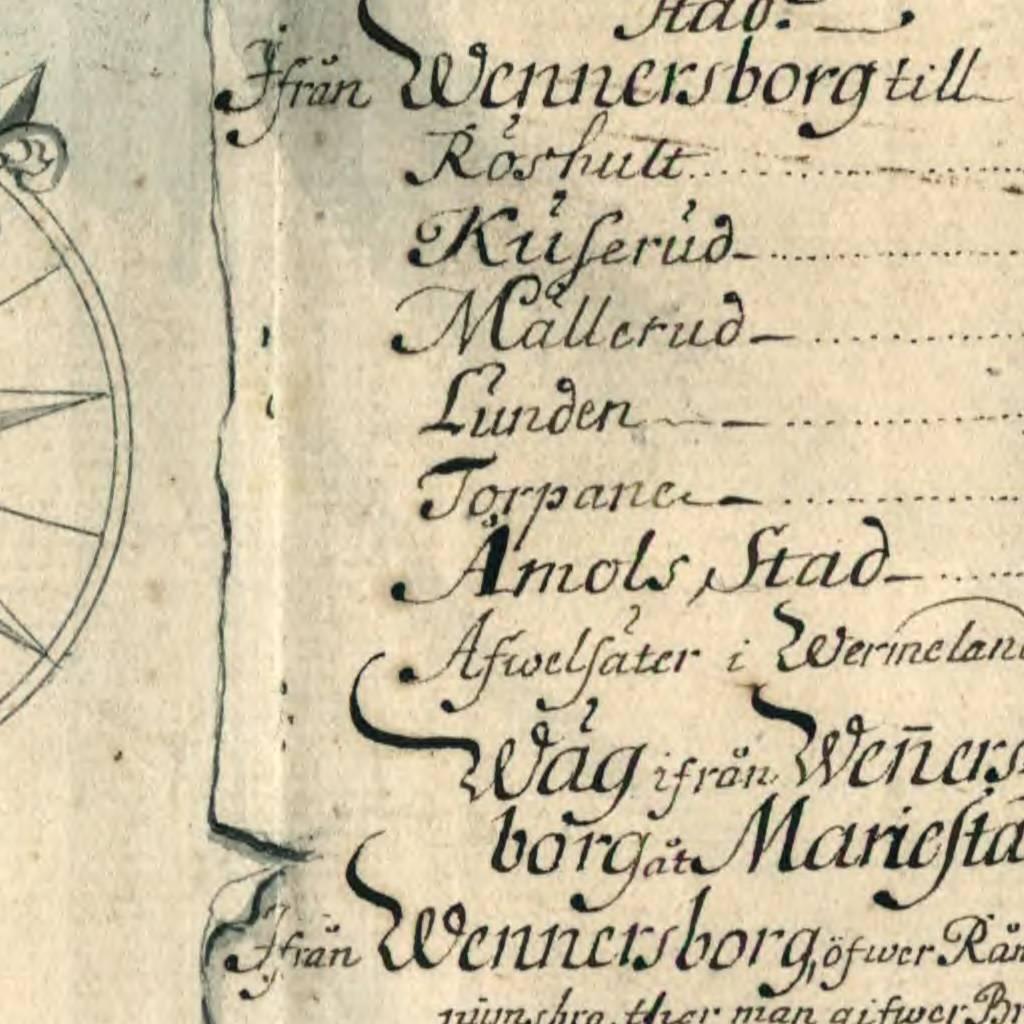 Stad.
Ifrån Wennersborg till
Röshult
Kuserud
Mällerud
Lunden
Torpane
Åmols Stad
Afwelsäter i Wermeland
Wäg ifrån Wen̄ers
borg åt Mariesta
Ifrån Wennersborg, öfwer Rån
ther man gifwer